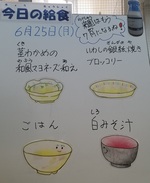 今日の給食
6月25日(月)
茎わかめの
和風マヨネーズ和え
いわしの銀紙焼き
ブロッコリー
ごはん
白みそ汁